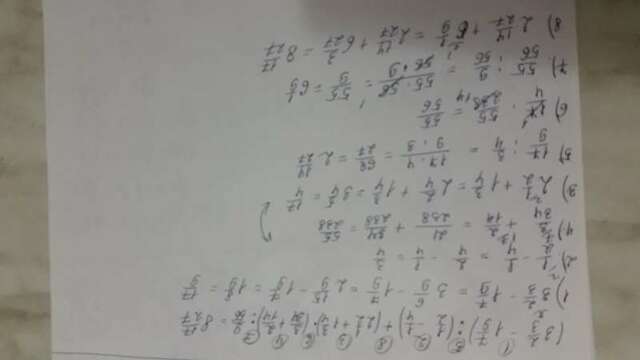 (3 2/3 - 1 7/9) : (1/2 - 1/4) + (2 1/2 + 1 3/4) · (3/34 + 2/14) : 9/56 = 8 17/27
1) 3 2/3 - 1 7/9 = 3 6/9 - 1 7/9 = 2 15/9 - 1 7/9 = 1 8/9 = 17/9
2) 1/2 - 1/4 = 2/4 - 1/4 = 3/4
3/34 + 2/14 = 21/238 + 34/238 = 55/238
3) 2 1/2 + 1 3/4 = 2 2/4 + 1 3/4 = 3 5/4 = 17/4
5) 17/9 : 3/4 = 17 · 4 / 9 · 3 = 68/27 = 2 14/27
6) 17/4 · 55/238 = 55/56
7) 55/56 : 9/56 = 55 · 56 / 56 · 9 = 55/9 = 6 1/9
8) 2 14/27 + 6 1/9 = 2 14/27 + 6 3/27 = 8 17/27